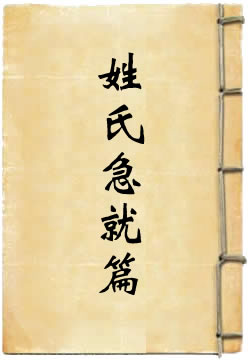 姓氏急就篇